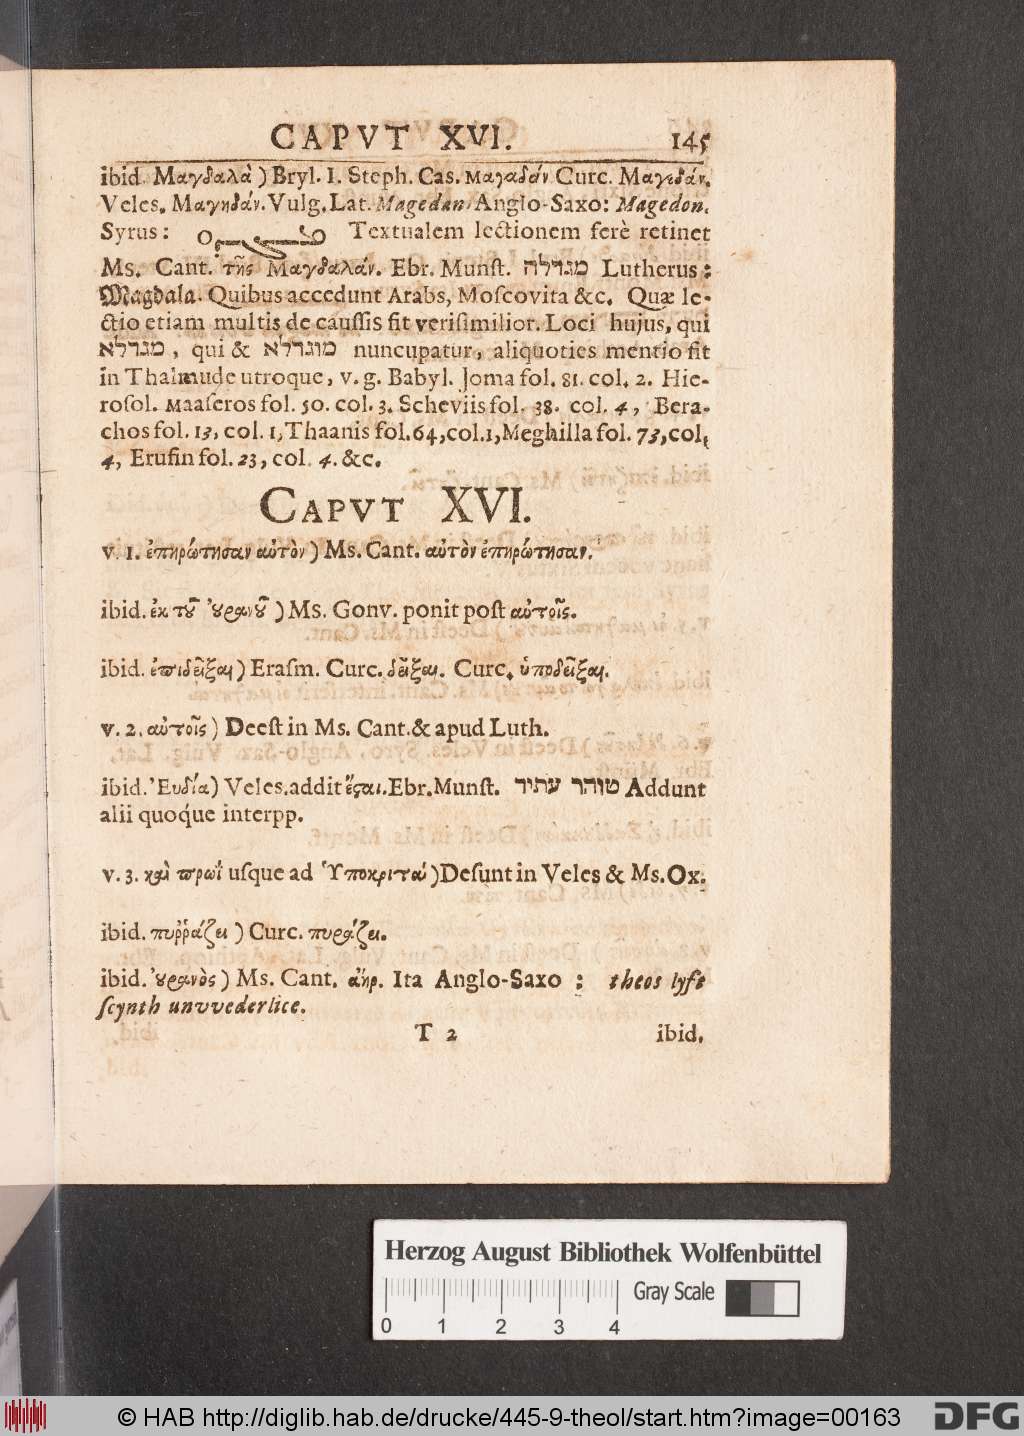 CAPVT XVI. 145
ibid. Μαγδαλὰ) Bryl. I. Steph. Cas. Μαγαδάν Curc. Μαγεδάν.
Veles. Μαγηδάν. Vulg. Lat. Magedan. Anglo-Saxo: Magedon.
Syrus: Textualem lectionem ferè retinet
Ms. Cant. τῆς Μαγδαλάν. Ebr. Munſt. מגדלה Lutherus:
Magdala. Quibus accedunt Arabs, Moſcovita &c. Quæ le-
ctio etiam multis de cauſſis fit veriſimilior. Loci hujus, qui
מגדלא, qui & מוגדלא nuncupatur, aliquoties mentio fit
in Thalmude utroque, v. g. Babyl. Joma fol. 81. col. 2. Hie-
roſol. Maaſeros fol. 50. col. 3. Scheviis fol. 38. col. 4, Bera-
chos fol. 13, col. 1, Thaanis fol. 64, col. 1, Meghilla fol. 73, col,
4, Erufin fol. 23, col. 4. &c.
CAPVT XVI.
v. 1. ἐπηρώτησαν αὐτὸν) Ms. Cant. αὐτὸν ἐπηρώτησαν.
ibid. ἐκ τοῦ οὐρανοῦ) Ms. Gonv. ponit poſt αὐτοῖς.
ibid. ἐπιδεῖξαι) Eraſm. Curc. δεῖξαι. Curc. ὑποδεῖξαι.
v. 2. αὐτοῖς) Deeſt in Ms. Cant. & apud Luth.
ibid. Ἐυδία) Veles. addit ἔςαι. Ebr. Munſt. טוהר עתיד Addunt
alii quoque interpp.
v. 3. καὶ πρωῒ uſque ad Ὑποκριταί) Deſunt in Veles & Ms. Ox.
ibid. πυῤῥάζει) Curc. πυράζει.
ibid. οὐρανὸς) Ms. Cant. ἀήρ. Ita Anglo-Saxo: theos lyft
ſcynth unvvederlice.
T 2 ibid.
Herzog August Bibliothek Wolfenbüttel
Gray Scale
0 1 2 3 4
© HAB http://diglib.hab.de/drucke/445-9-theol/start.htm?image=00163
DFG